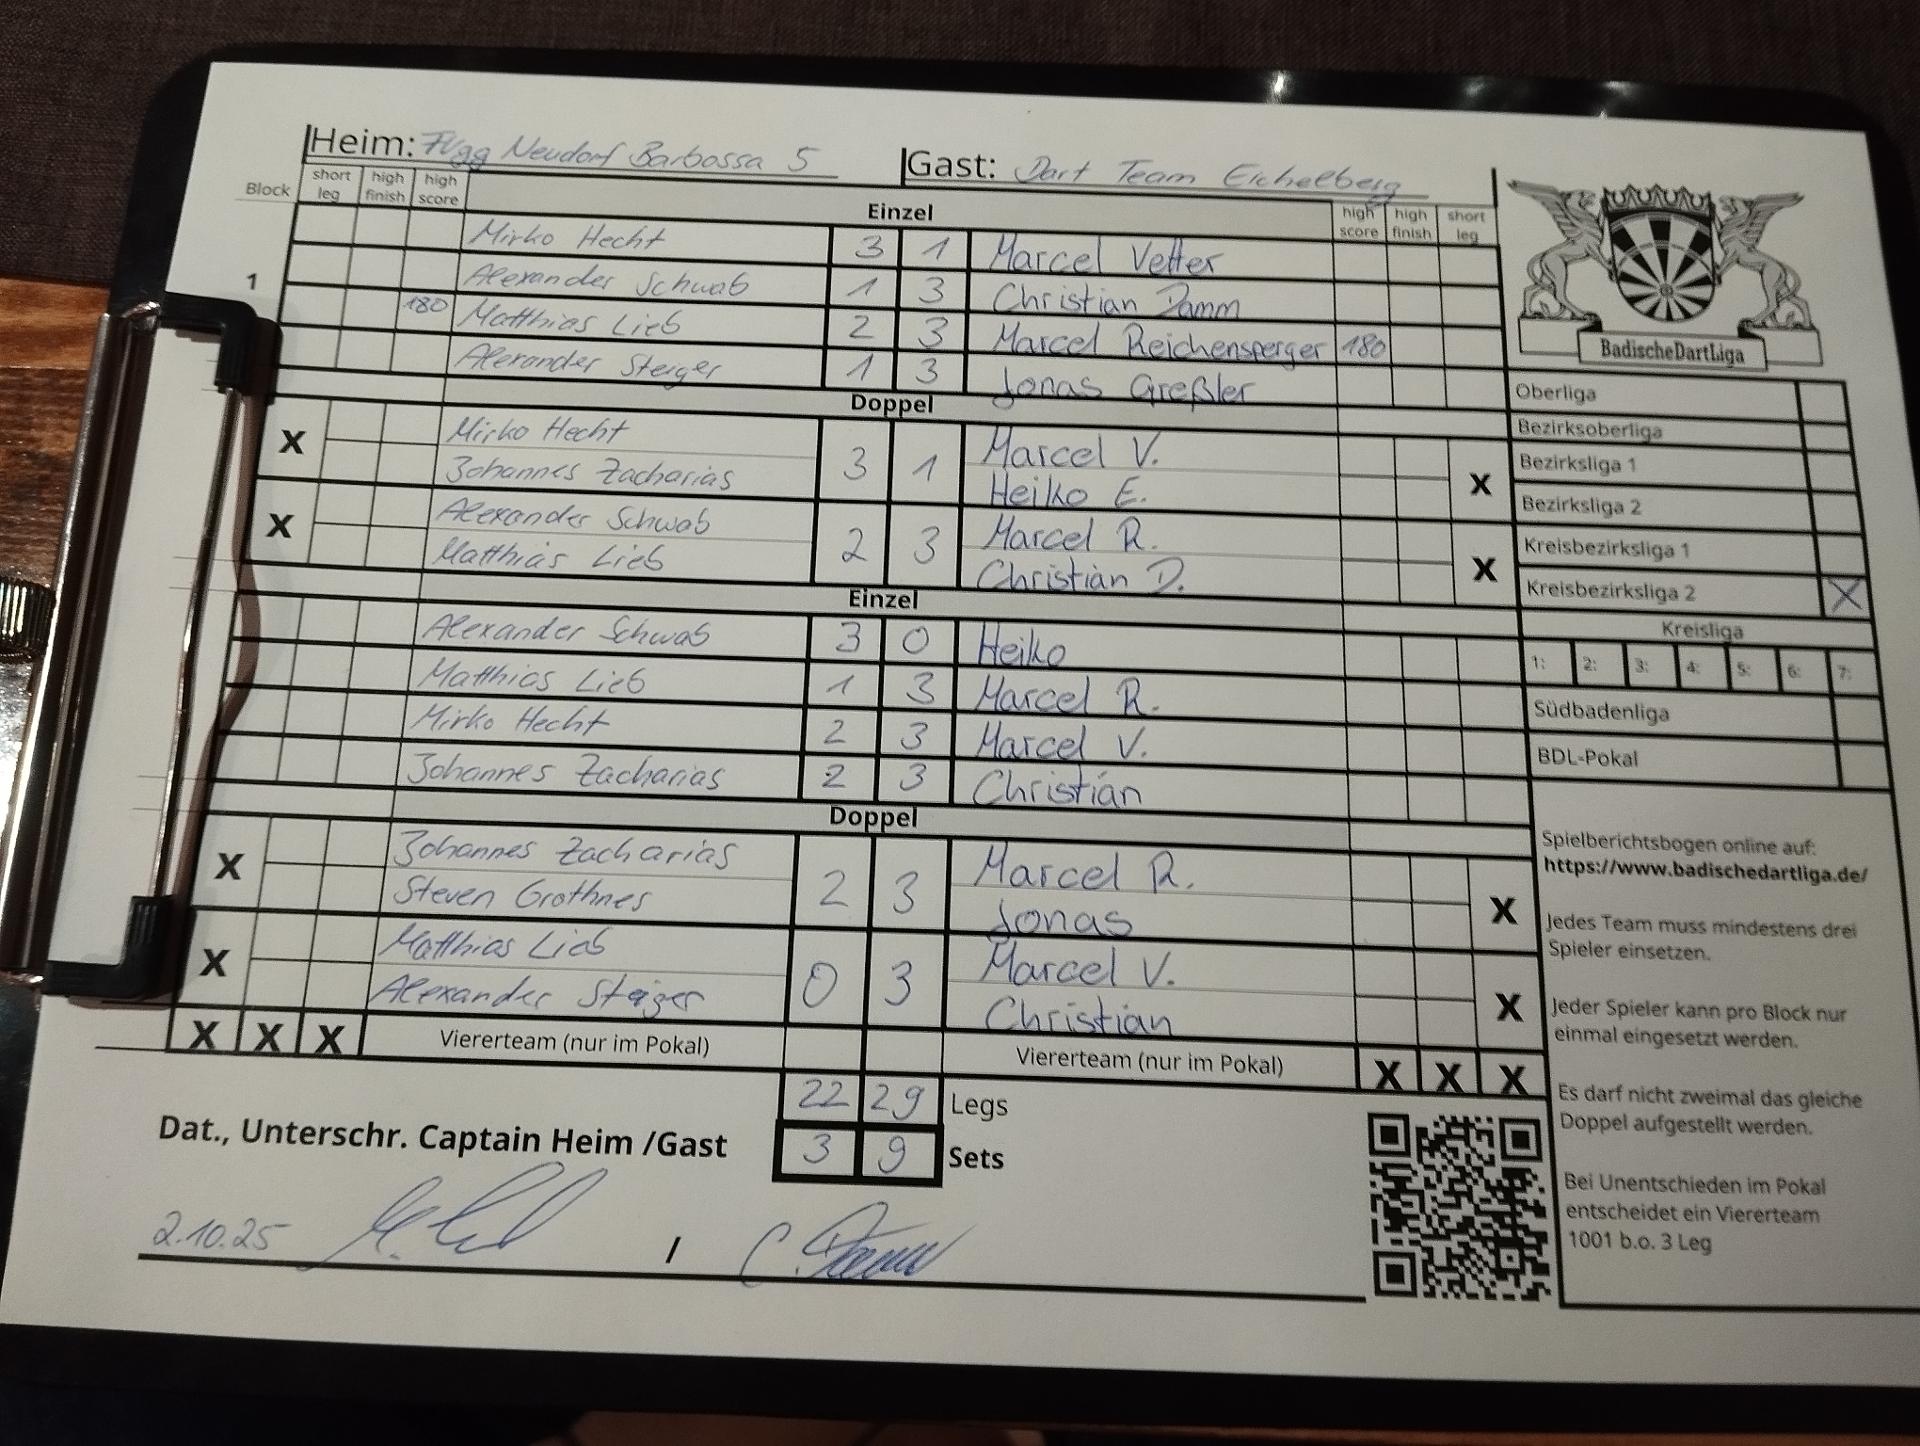 Heim: FVgg Neudorf Barbossa 5 Gast: Dart Team Eichelberg
Block short leg high finish high score Einzel high score high finish short leg
Mirko Hecht 3 1 Marcel Vetter
1 Alexander Schwab 1 3 Christian Damm
180 Matthias Lieb 2 3 Marcel Reichensperger 180
Alexander Steiger 1 3 Jonas Greßler
Doppel
X Mirko Hecht 3 1 Marcel V. X
Johannes Zacharias Heiko E.
X Alexander Schwab 2 3 Marcel R. X
Matthias Lieb Christian D.
Einzel
Alexander Schwab 3 0 Heiko
Matthias Lieb 1 3 Marcel R.
Mirko Hecht 2 3 Marcel V.
Johannes Zacharias 2 3 Christian
Doppel
X Johannes Zacharias 2 3 Marcel R. X
Steven Grothnes Jonas
X Matthias Lieb 0 3 Marcel V. X
Alexander Steiger Christian
X X X Viererteam (nur im Pokal) Viererteam (nur im Pokal) X X X
22 29 Legs
3 9 Sets
Dat., Unterschr. Captain Heim /Gast
2.10.25 /
BadischeDartLiga
Oberliga
Bezirksoberliga
Bezirksliga 1
Bezirksliga 2
Kreisbezirksliga 1
Kreisbezirksliga 2 X
Kreisliga
1: 2: 3: 4: 5: 6: 7:
Südbadenliga
BDL-Pokal
Spielberichtsbogen online auf:
https://www.badischedartliga.de/
Jedes Team muss mindestens drei
Spieler einsetzen.
Jeder Spieler kann pro Block nur
einmal eingesetzt werden.
Es darf nicht zweimal das gleiche
Doppel aufgestellt werden.
Bei Unentschieden im Pokal
entscheidet ein Viererteam
1001 b.o. 3 Leg